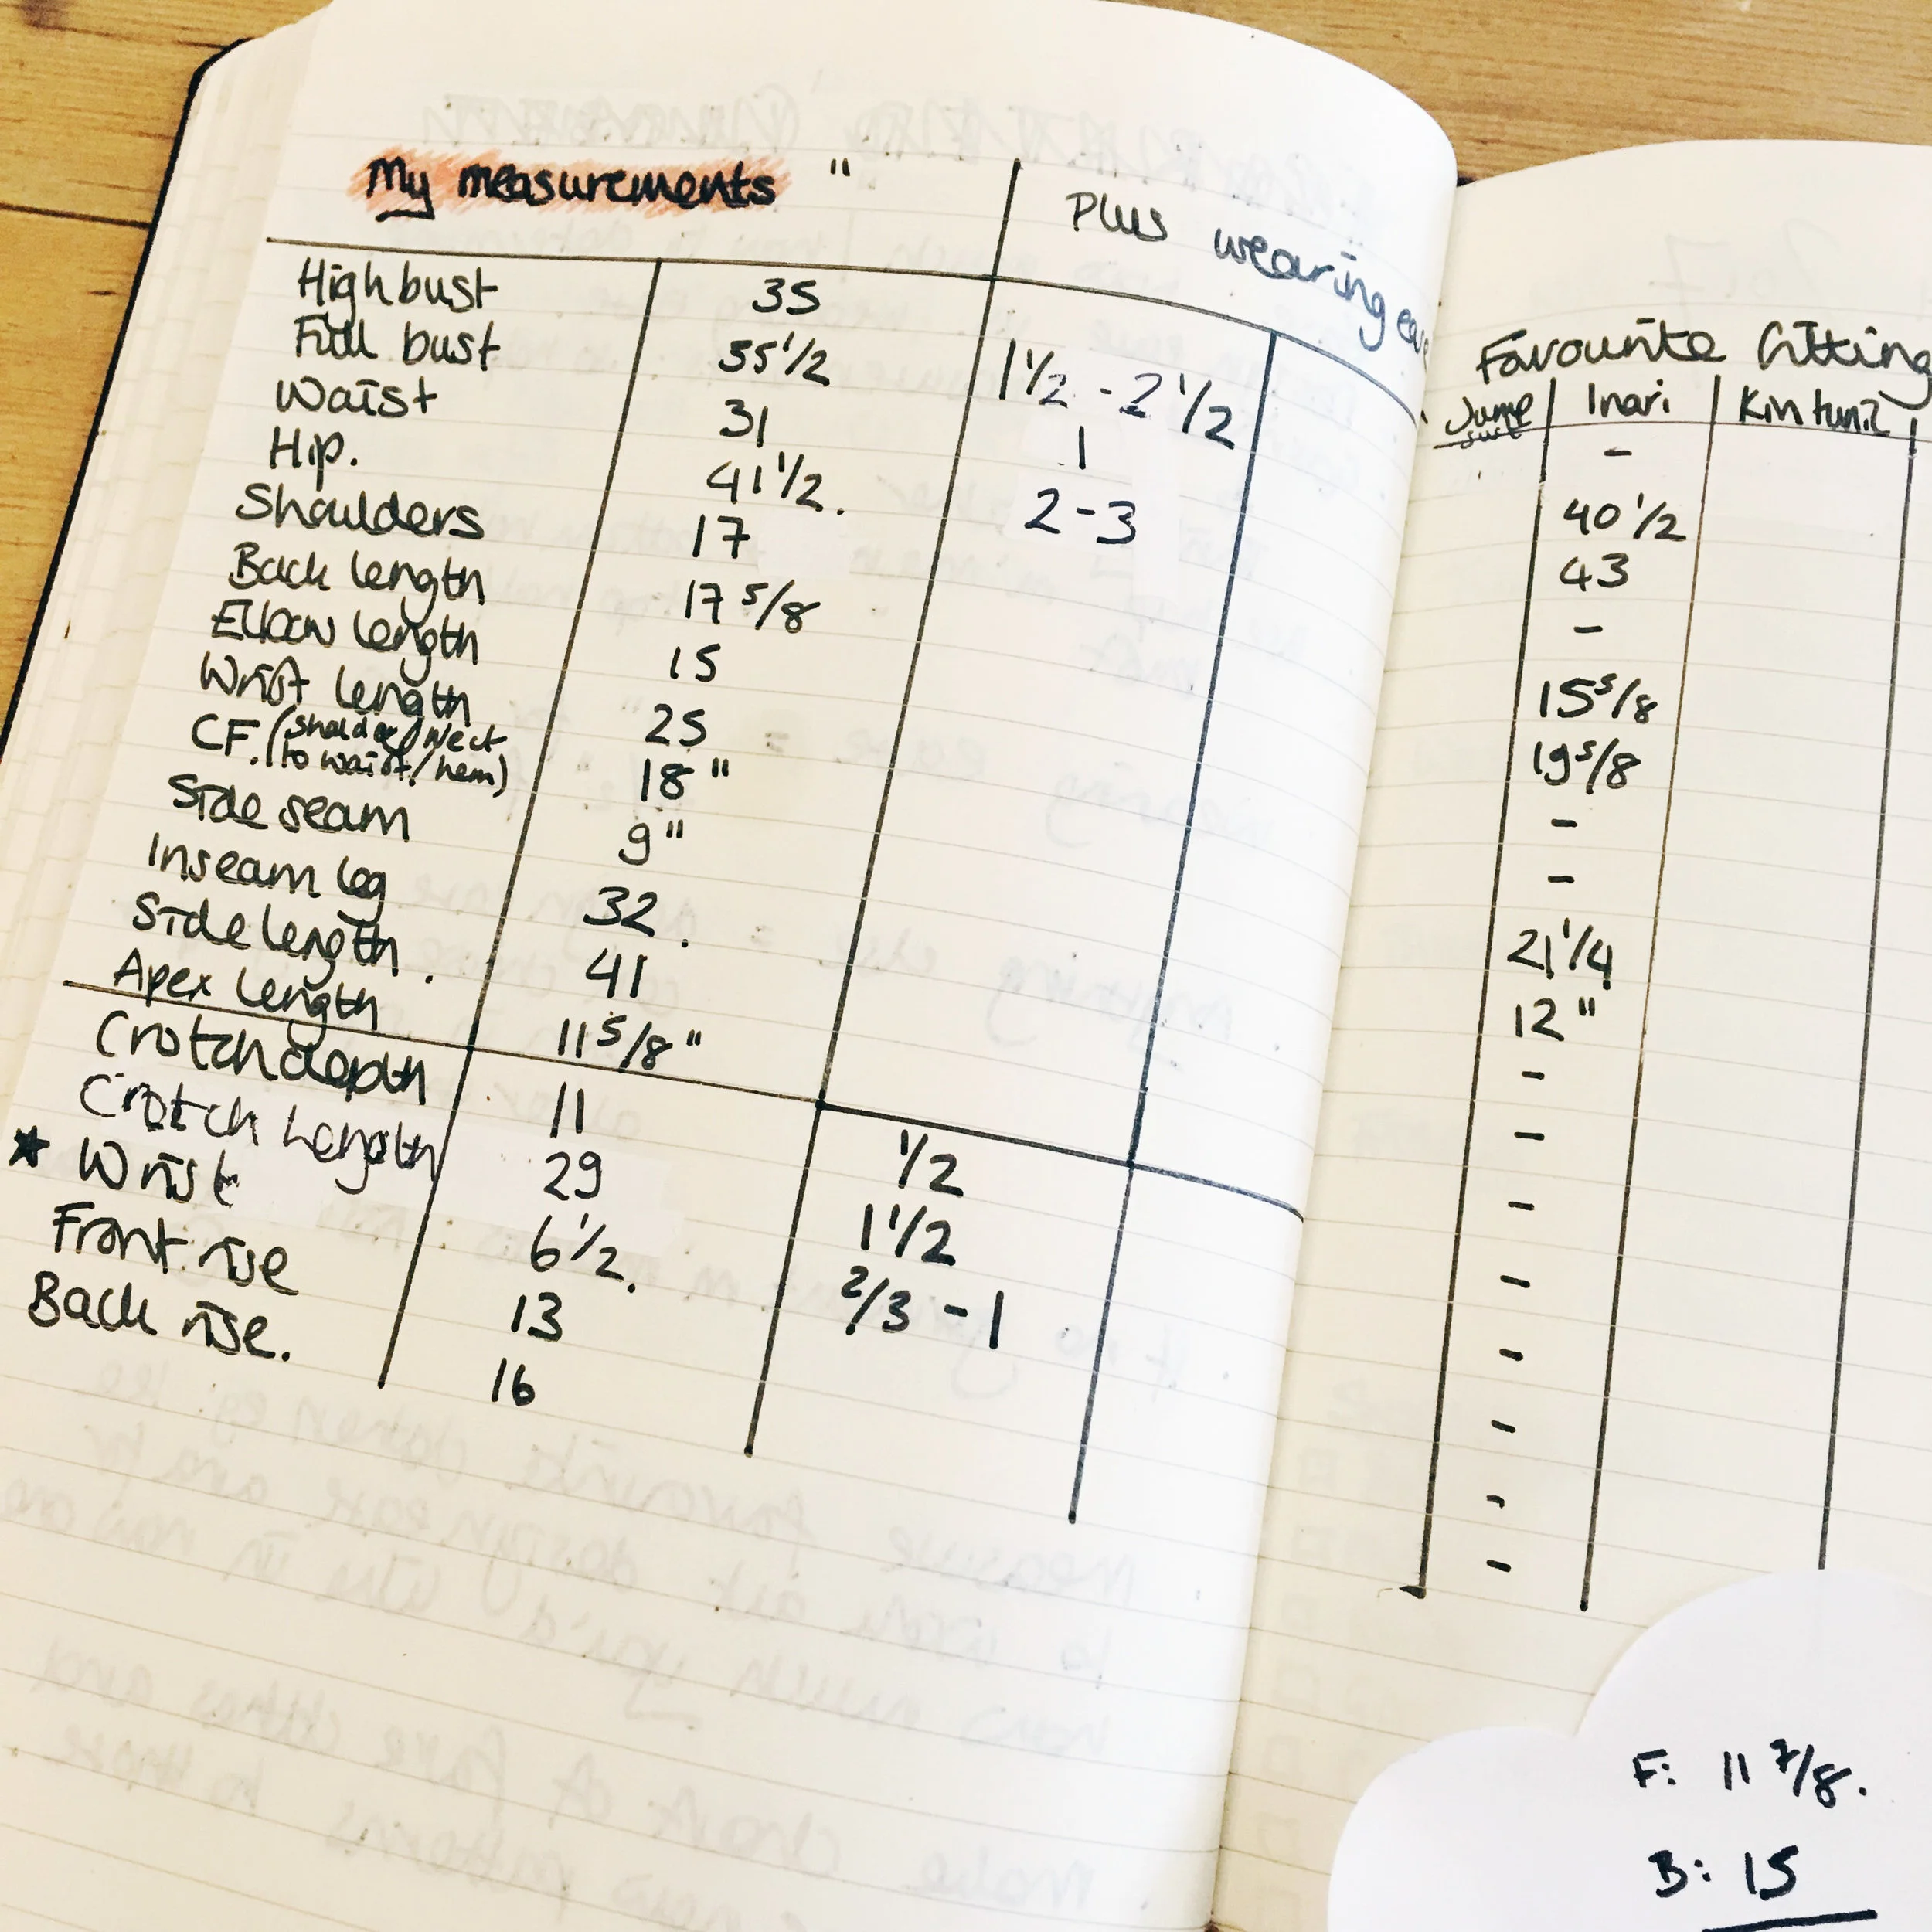 My measurements "
Plus wearing ea
High bust 35
Full bust 35 1/2 1 1/2 - 2 1/2
Waist 31 1
Hip. 41 1/2. 2-3
Shoulders 17
Back length 17 5/8
Elbow length 15
Wrist length 25
CF. (Shoulder/Neck
to waist/hem) 18"
Side seam 9"
Inseam leg 32.
Side length. 41
Apex length 11 5/8"
Crotch depth 11 1/2
Crotch Length 29 1 1/2
★ Wrist 6 1/2. 2/3 - 1
Front rise 13
Back rise. 16
Favourite fitting
Jump Inari Kin tunic
suit
-
40 1/2
43
-
15 5/8
19 5/8
-
-
21 1/4
12"
-
-
-
-
-
-
-
-
F: 11 7/8.
B: 15